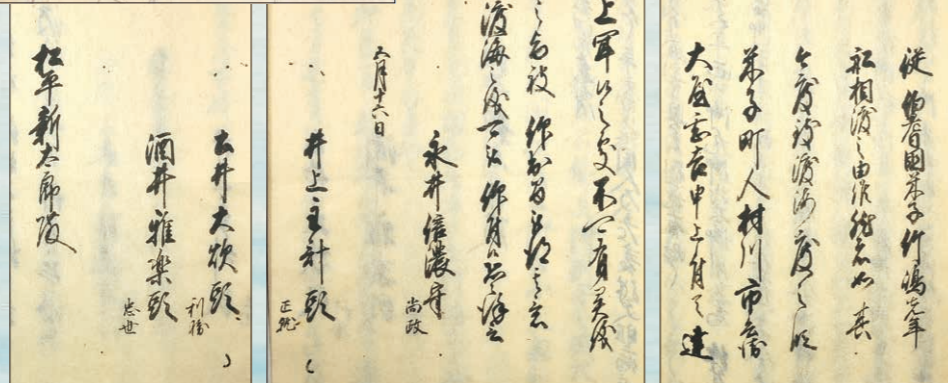 従 伯耆国米子竹嶋先年
船相渡之由候然者如其
今度致渡海度之段
米子町人村川市兵衛
大屋甚吉申上付而 達
上聞候之処不可有異儀
之旨被 仰出候間被得其意
渡海之儀可被 仰付候恐々謹言
永井信濃守
尚政
五月十六日
井上主計頭
正就
土井大炊頭
利勝
酒井雅楽頭
忠世
松平新太郎殿